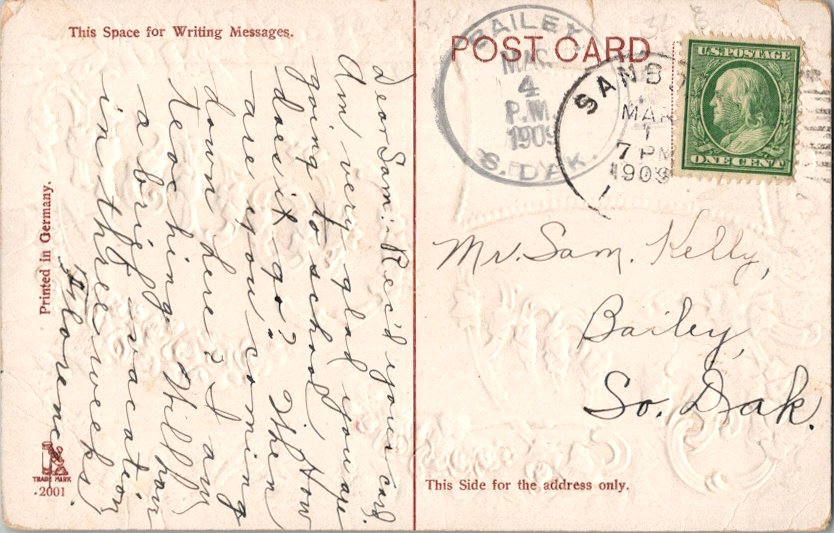 This Space for Writing Messages.
Dear Sam:- Rec'd your card.
Am very glad you are
going to school. How
does it go? When
are you coming
down here? I am
teaching. Will have
a brief vacation
in three weeks.
Florence.
Printed in Germany.
TRADE MARK
2001
POST CARD
BAILEY
MAR
4
P.M
1909
S. DAK.
MAR
1
7 PM
1909
U.S. POSTAGE
ONE CENT
Mr. Sam. Kelly,
Bailey,
So. Dak.
This Side for the address only.